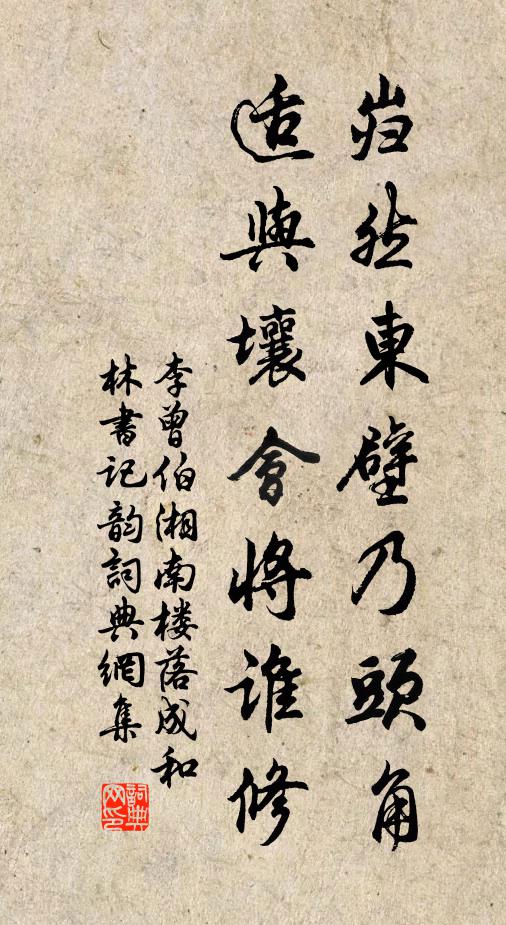 岿然東壁乃頭角
适與壞會將谁修
李曾伯湘南楼落成和
林書记韵詞典網集
詞典网印